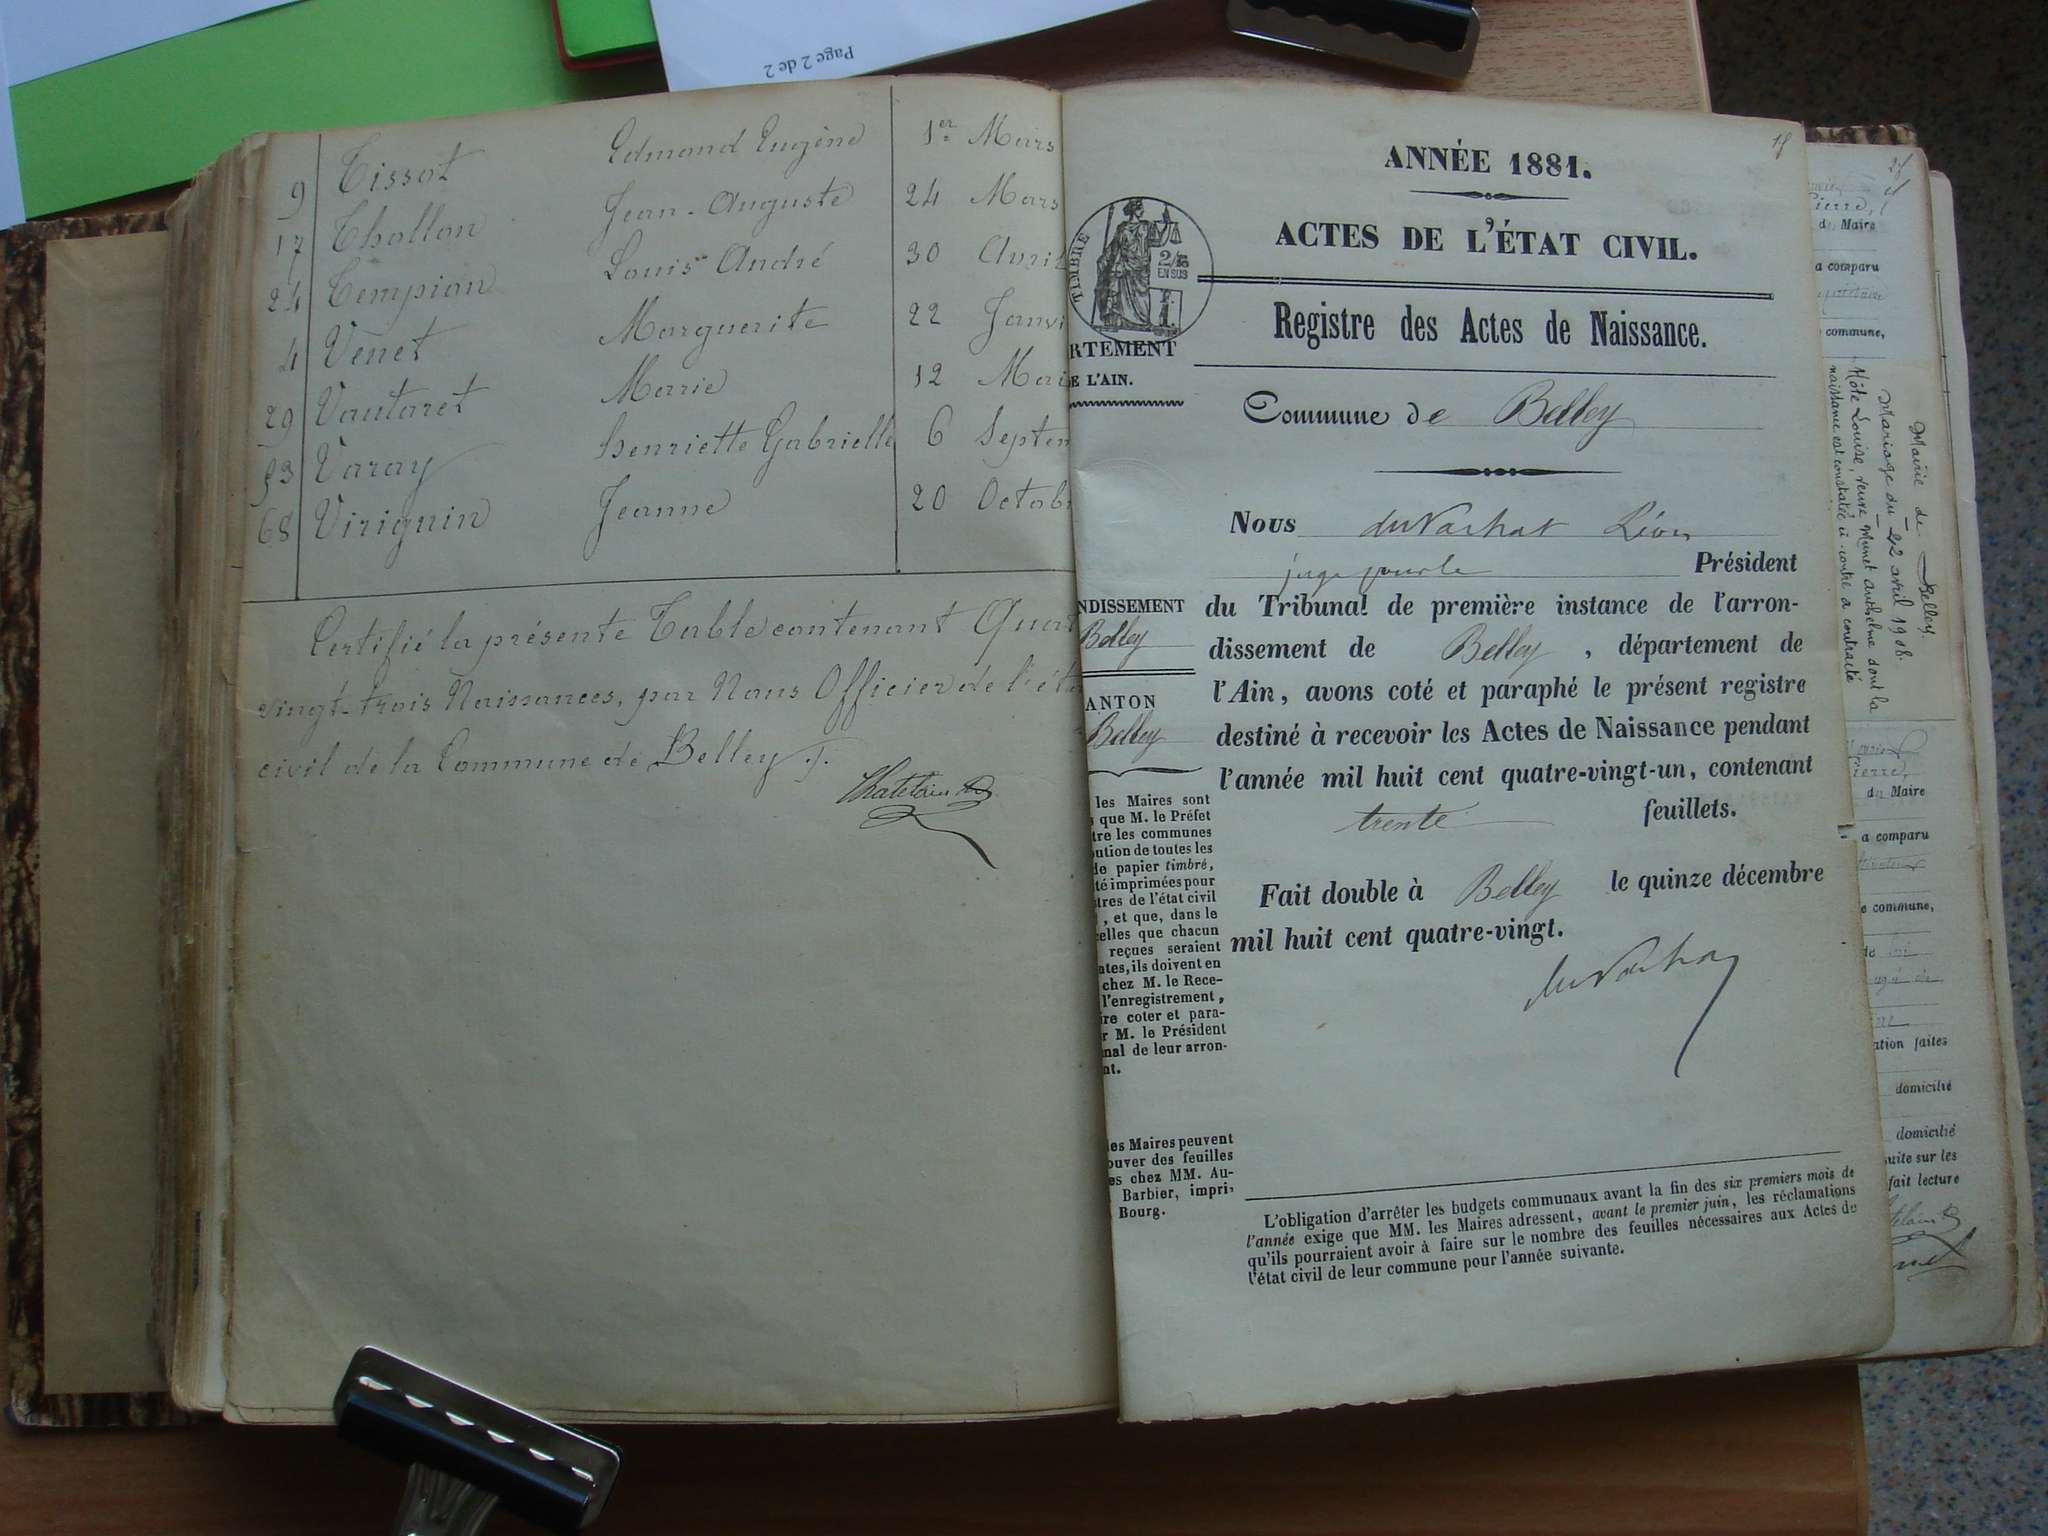 Page 2 de 2
9 Tissot Edmond Eugène 1er Mars
17 Thollon Jean-Auguste 24 Mars
24 Tempion Louis André 30 Avril
4 Venet Marguerite 22 Janvi
29 Vautaret Marie 12 Mai
53 Varay Henriette Gabrielle 6 Septem
68 Virignin Jeanne 20 Octob
Certifié la présente Table contenant Quat
vingt-trois Naissances, par Nous Officier de l'éta
civil de la Commune de Belley
Chatelain
ANNÉE 1881.
ACTES DE L'ÉTAT CIVIL.
Registre des Actes de Naissance.
Commune de Belley
TIMBRE
2/10
EN SUS
RTEMENT
E L'AIN.
NDISSEMENT
Belley
ANTON
Belley
les Maires sont
que M. le Préfet
tre les communes
bution de toutes les
de papier timbré,
té imprimées pour
tres de l'état civil
, et que, dans le
celles que chacun
reçues seraient
ates, ils doivent en
chez M. le Rece-
l'enregistrement,
ire coter et para-
r M. le Président
nal de leur arron-
nt.
les Maires peuvent
ouver des feuilles
es chez MM. Au-
Barbier, impri-
Bourg.
Nous du Vachat Léon
juge pour le Président
du Tribunal de première instance de l'arron-
dissement de Belley, département de
l'Ain, avons coté et paraphé le présent registre
destiné à recevoir les Actes de Naissance pendant
l'année mil huit cent quatre-vingt-un, contenant
trente feuillets.
Fait double à Belley le quinze décembre
mil huit cent quatre-vingt.
du Vachat
L'obligation d'arrêter les budgets communaux avant la fin des six premiers mois de
l'année exige que MM. les Maires adressent, avant le premier juin, les réclamations
qu'ils pourraient avoir à faire sur le nombre des feuilles nécessaires aux Actes de
l'état civil de leur commune pour l'année suivante.
Pierre,
du Maire
a comparu
commune,
Mairie de Belley
Mariage du 22 avril 1908.
Môte Louise, veuve Munet anthelme dont la
naissance est constatée ci-contre a contracté
Pierre,
du Maire
a comparu
e commune,
de
agé de
ation faites
domicilié
domicilié
suite sur les
fait lecture